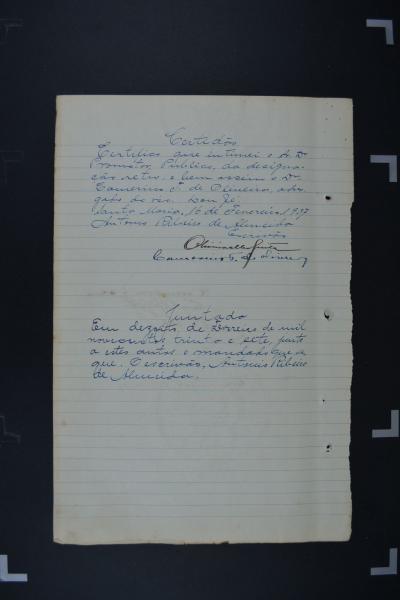 Certidão
Certifico que intimei o Sr. Dr.
Promotor Publico, da designa-
ção retro, e bem assim o Dr.
Camerino C. de Oliveira, advo-
gado do réo. Dou fé.
Santa Maria, 16 de Fevereiro 1937
Antonio Ribeiro de Almeida
Escrivão
Camerino C. de Oliveira
Juntada
Em dezoito de Fevereiro de mil
novecentos trinta e sete, junto
a estes autos o mandado que se
gue. O escrivão, Antonio Ribeiro
de Almeida.